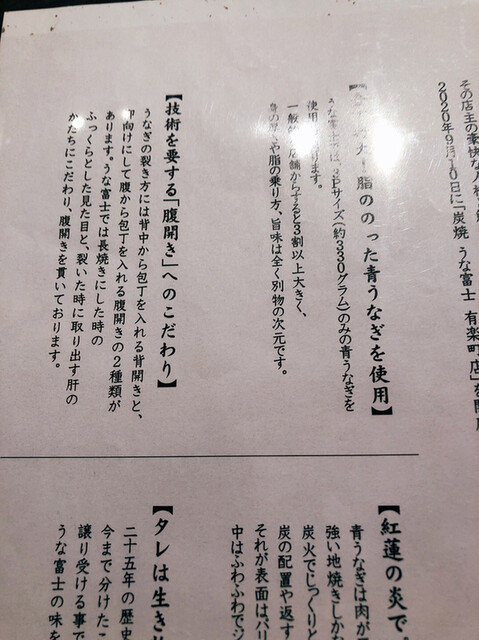 その店主の豪快な人
2020年9月10日に「炭焼 うな富士 有楽町店」を開
脂ののった青うなぎを使用】
サイズ(約330グラム)のみの青うなぎを
使用
一般 店舗から すると3割以上大きく、
身の厚さや脂の乗り方、旨味は全く別物の次元です。
【技術を要する「腹開き」へのこだわり】
うなぎの裂き方には背中から包丁を入れる背開きと、
仰向けにして腹から包丁を入れる腹開きの2種類が
あります。うな富士では長焼きにした時の
ふっくらとした見た目と、裂いた時に取り出す肝の
かたちにこだわり、腹開きを貫いております。
【紅蓮の炎で
青うなぎは肉が
強い地焼きしか
炭火でじっくりと
炭の配置や返す
それが表面はパリ
中はふわふわでジ
【タレは生き
二十五年の歴史
今まで分けたこ
譲り受ける事で
うな富士の味を